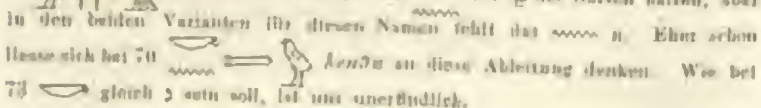 in den beiden Varianten für diesen Namen fehlt das n. Eher schon
liesse sich bei 70 an diese Ableitung denken. Wie bei
73 gleich sein soll, ist uns unerfindlich.